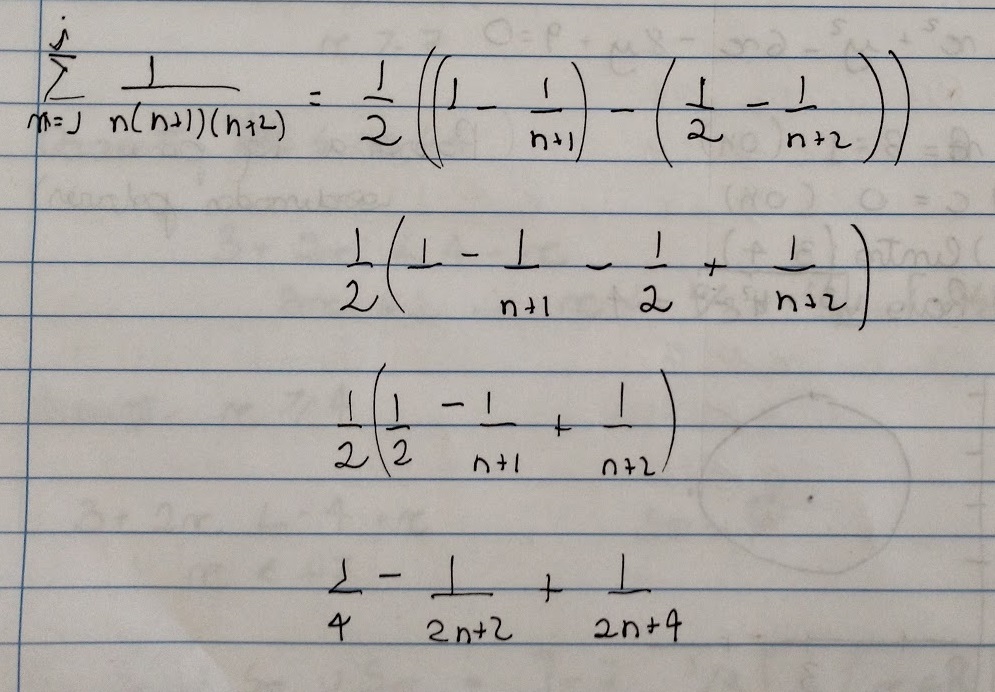 j
∑ 1/(n(n+1)(n+2)) = 1/2 ((1 - 1/(n+1)) - (1/2 - 1/(n+2)))
n=1
1/2 (1 - 1/(n+1) - 1/2 + 1/(n+2))
1/2 (1/2 - 1/(n+1) + 1/(n+2))
1/4 - 1/(2n+2) + 1/(2n+4)